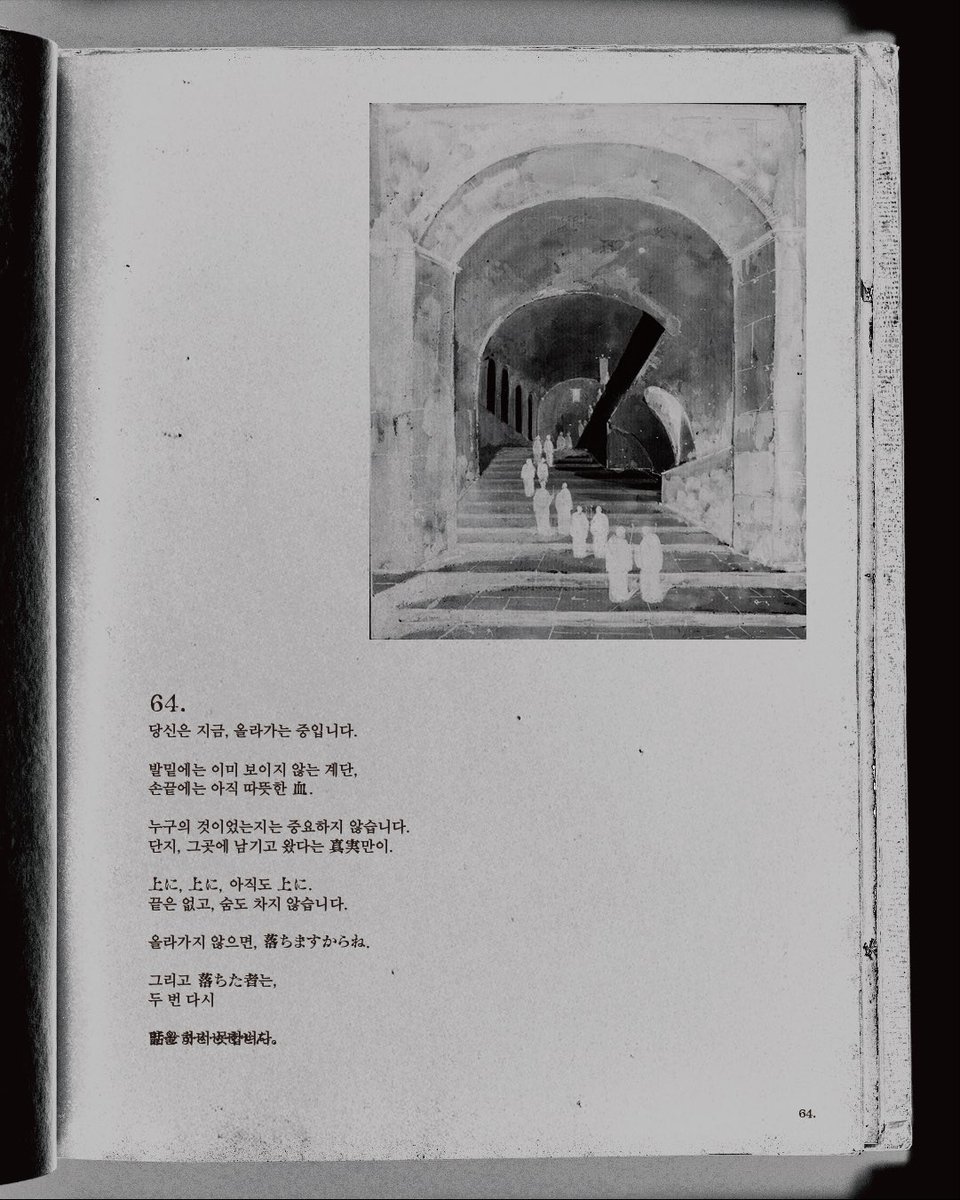 64.
당신은 지금, 올라가는 중입니다.
발밑에는 이미 보이지 않는 계단,
손끝에는 아직 따뜻한 血.
누구의 것이었는지는 중요하지 않습니다.
단지, 그곳에 남기고 왔다는 真実만이.
上に, 上に, 아직도 上に.
끝은 없고, 숨도 차지 않습니다.
올라가지 않으면, 落ちますからね.
그리고 落ちた者는,
두 번 다시
64.